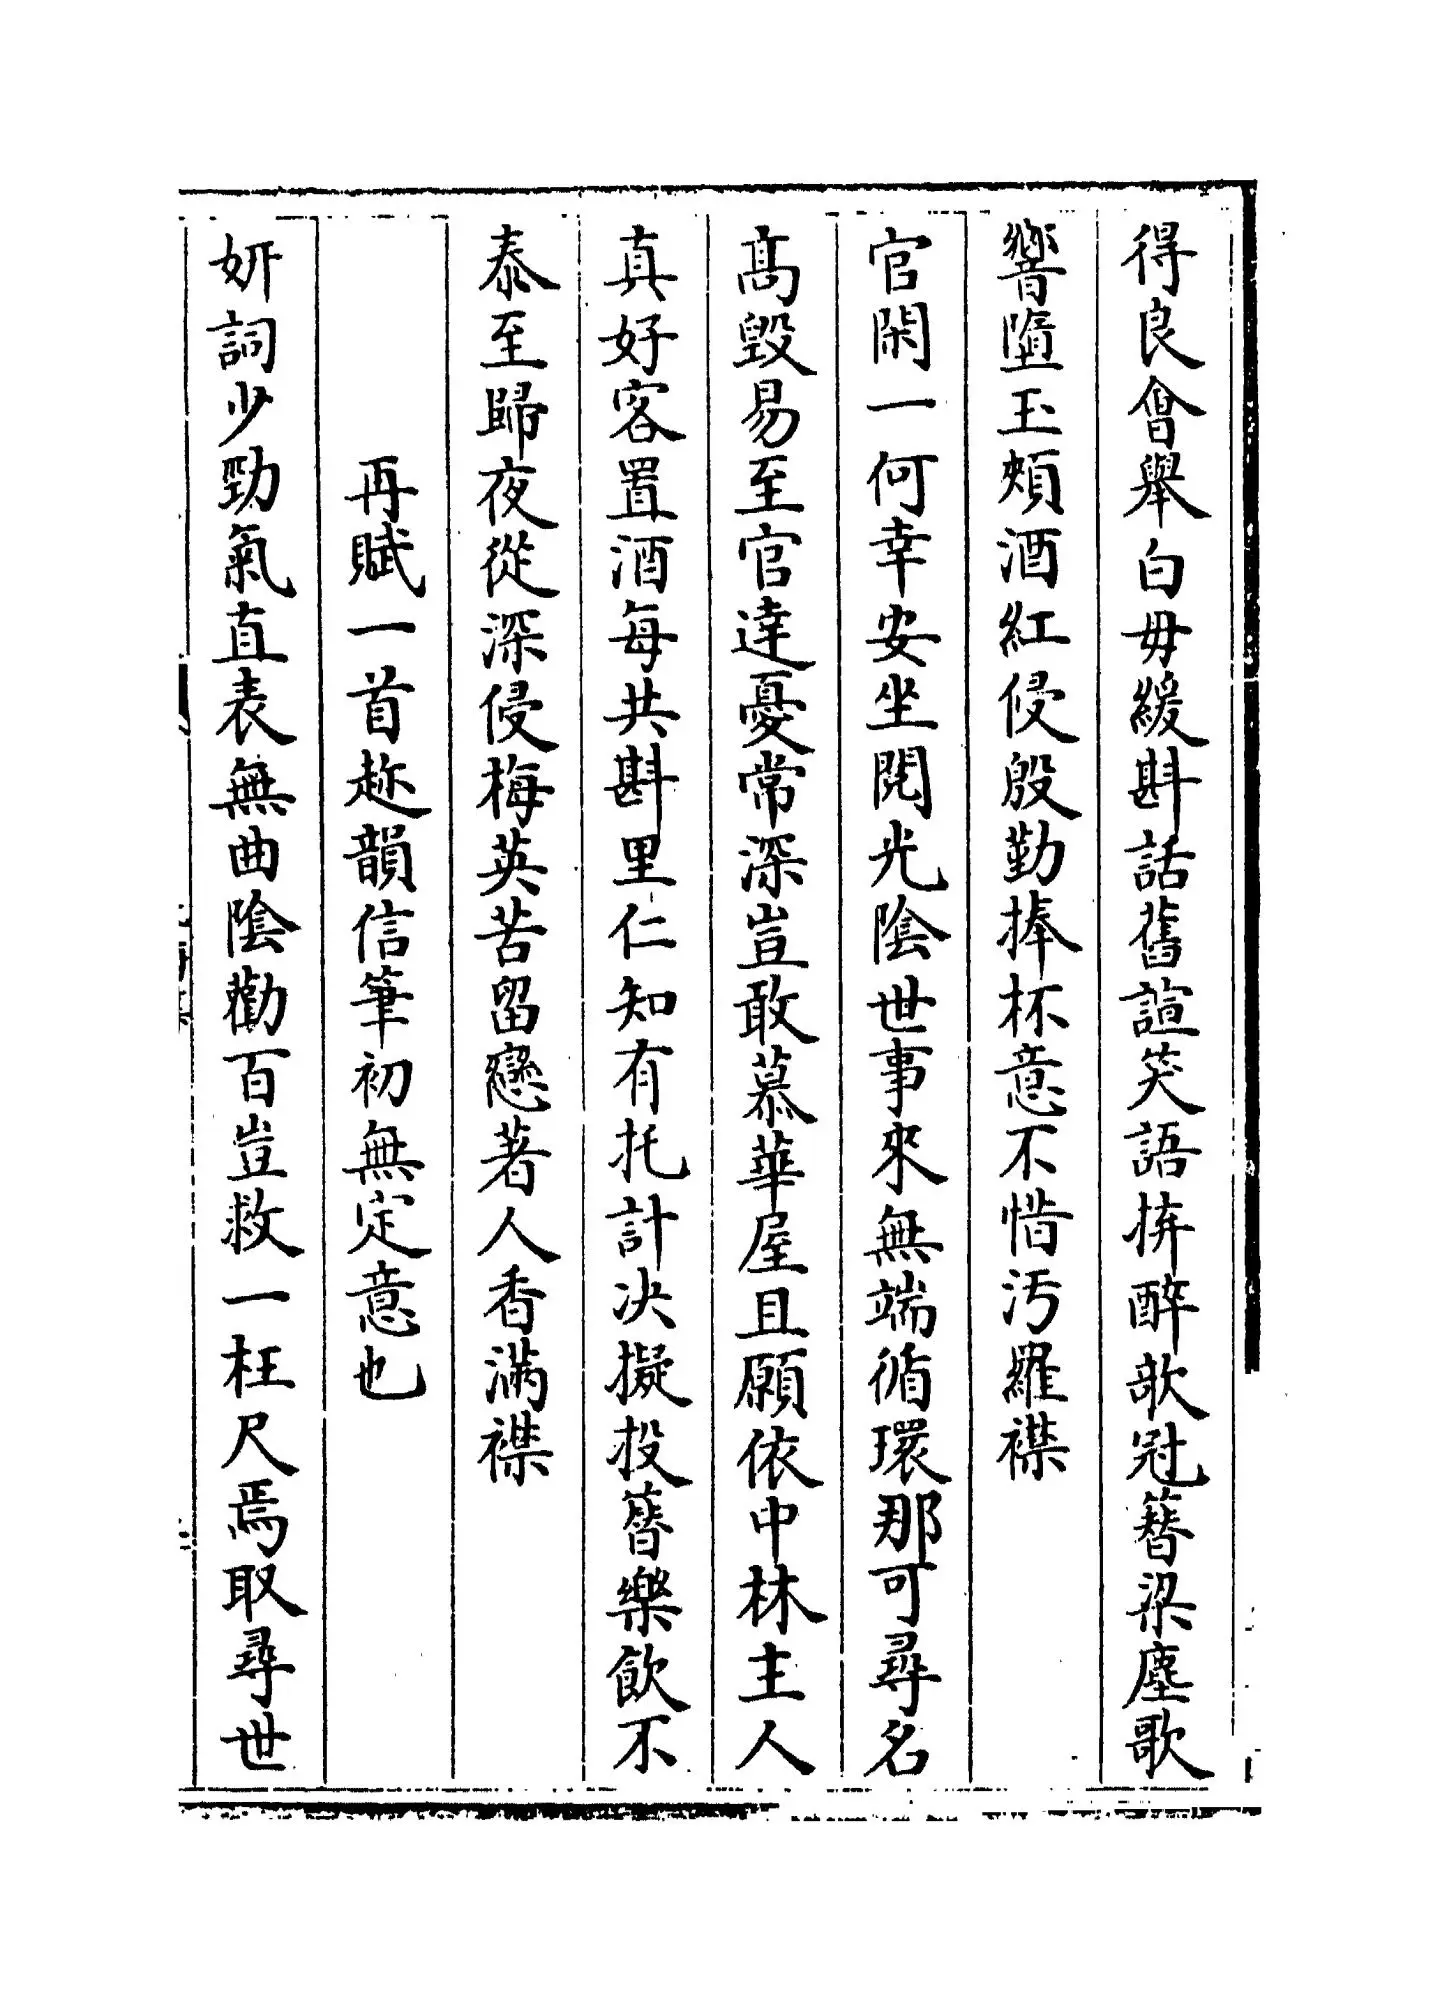 得良會舉白毋緩斟話舊諠笑語拚醉欹冠簪梁塵歌
響墮玉頰酒紅侵殷勤捧杯意不惜汚羅襟
官閑一何幸安坐閱光陰世事來無端循環那可尋名
髙毀易至官達憂常深豈敢慕華屋且願依中林主人
真好客置酒每共斟里仁知有托計决擬投簪樂飲不
泰至歸夜從深侵梅英苦留戀著人香滿襟
再賦一首趂韻信筆初無定意也
妍詞少勁氣直表無曲陰勸百豈救一枉尺焉取尋世